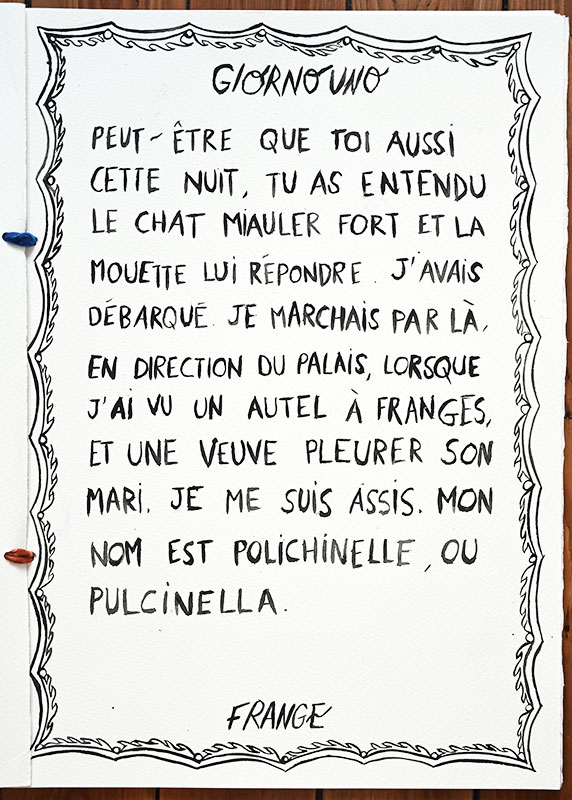 GIORNO UNO
PEUT-ÊTRE QUE TOI AUSSI
CETTE NUIT, TU AS ENTENDU
LE CHAT MIAULER FORT ET LA
MOUETTE LUI RÉPONDRE. J'AVAIS
DÉBARQUÉ. JE MARCHAIS PAR LÀ,
EN DIRECTION DU PALAIS, LORSQUE
J'AI VU UN AUTEL À FRANGES,
ET UNE VEUVE PLEURER SON
MARI. JE ME SUIS ASSIS. MON
NOM EST POLICHINELLE, OU
PULCINELLA.
FRANGE